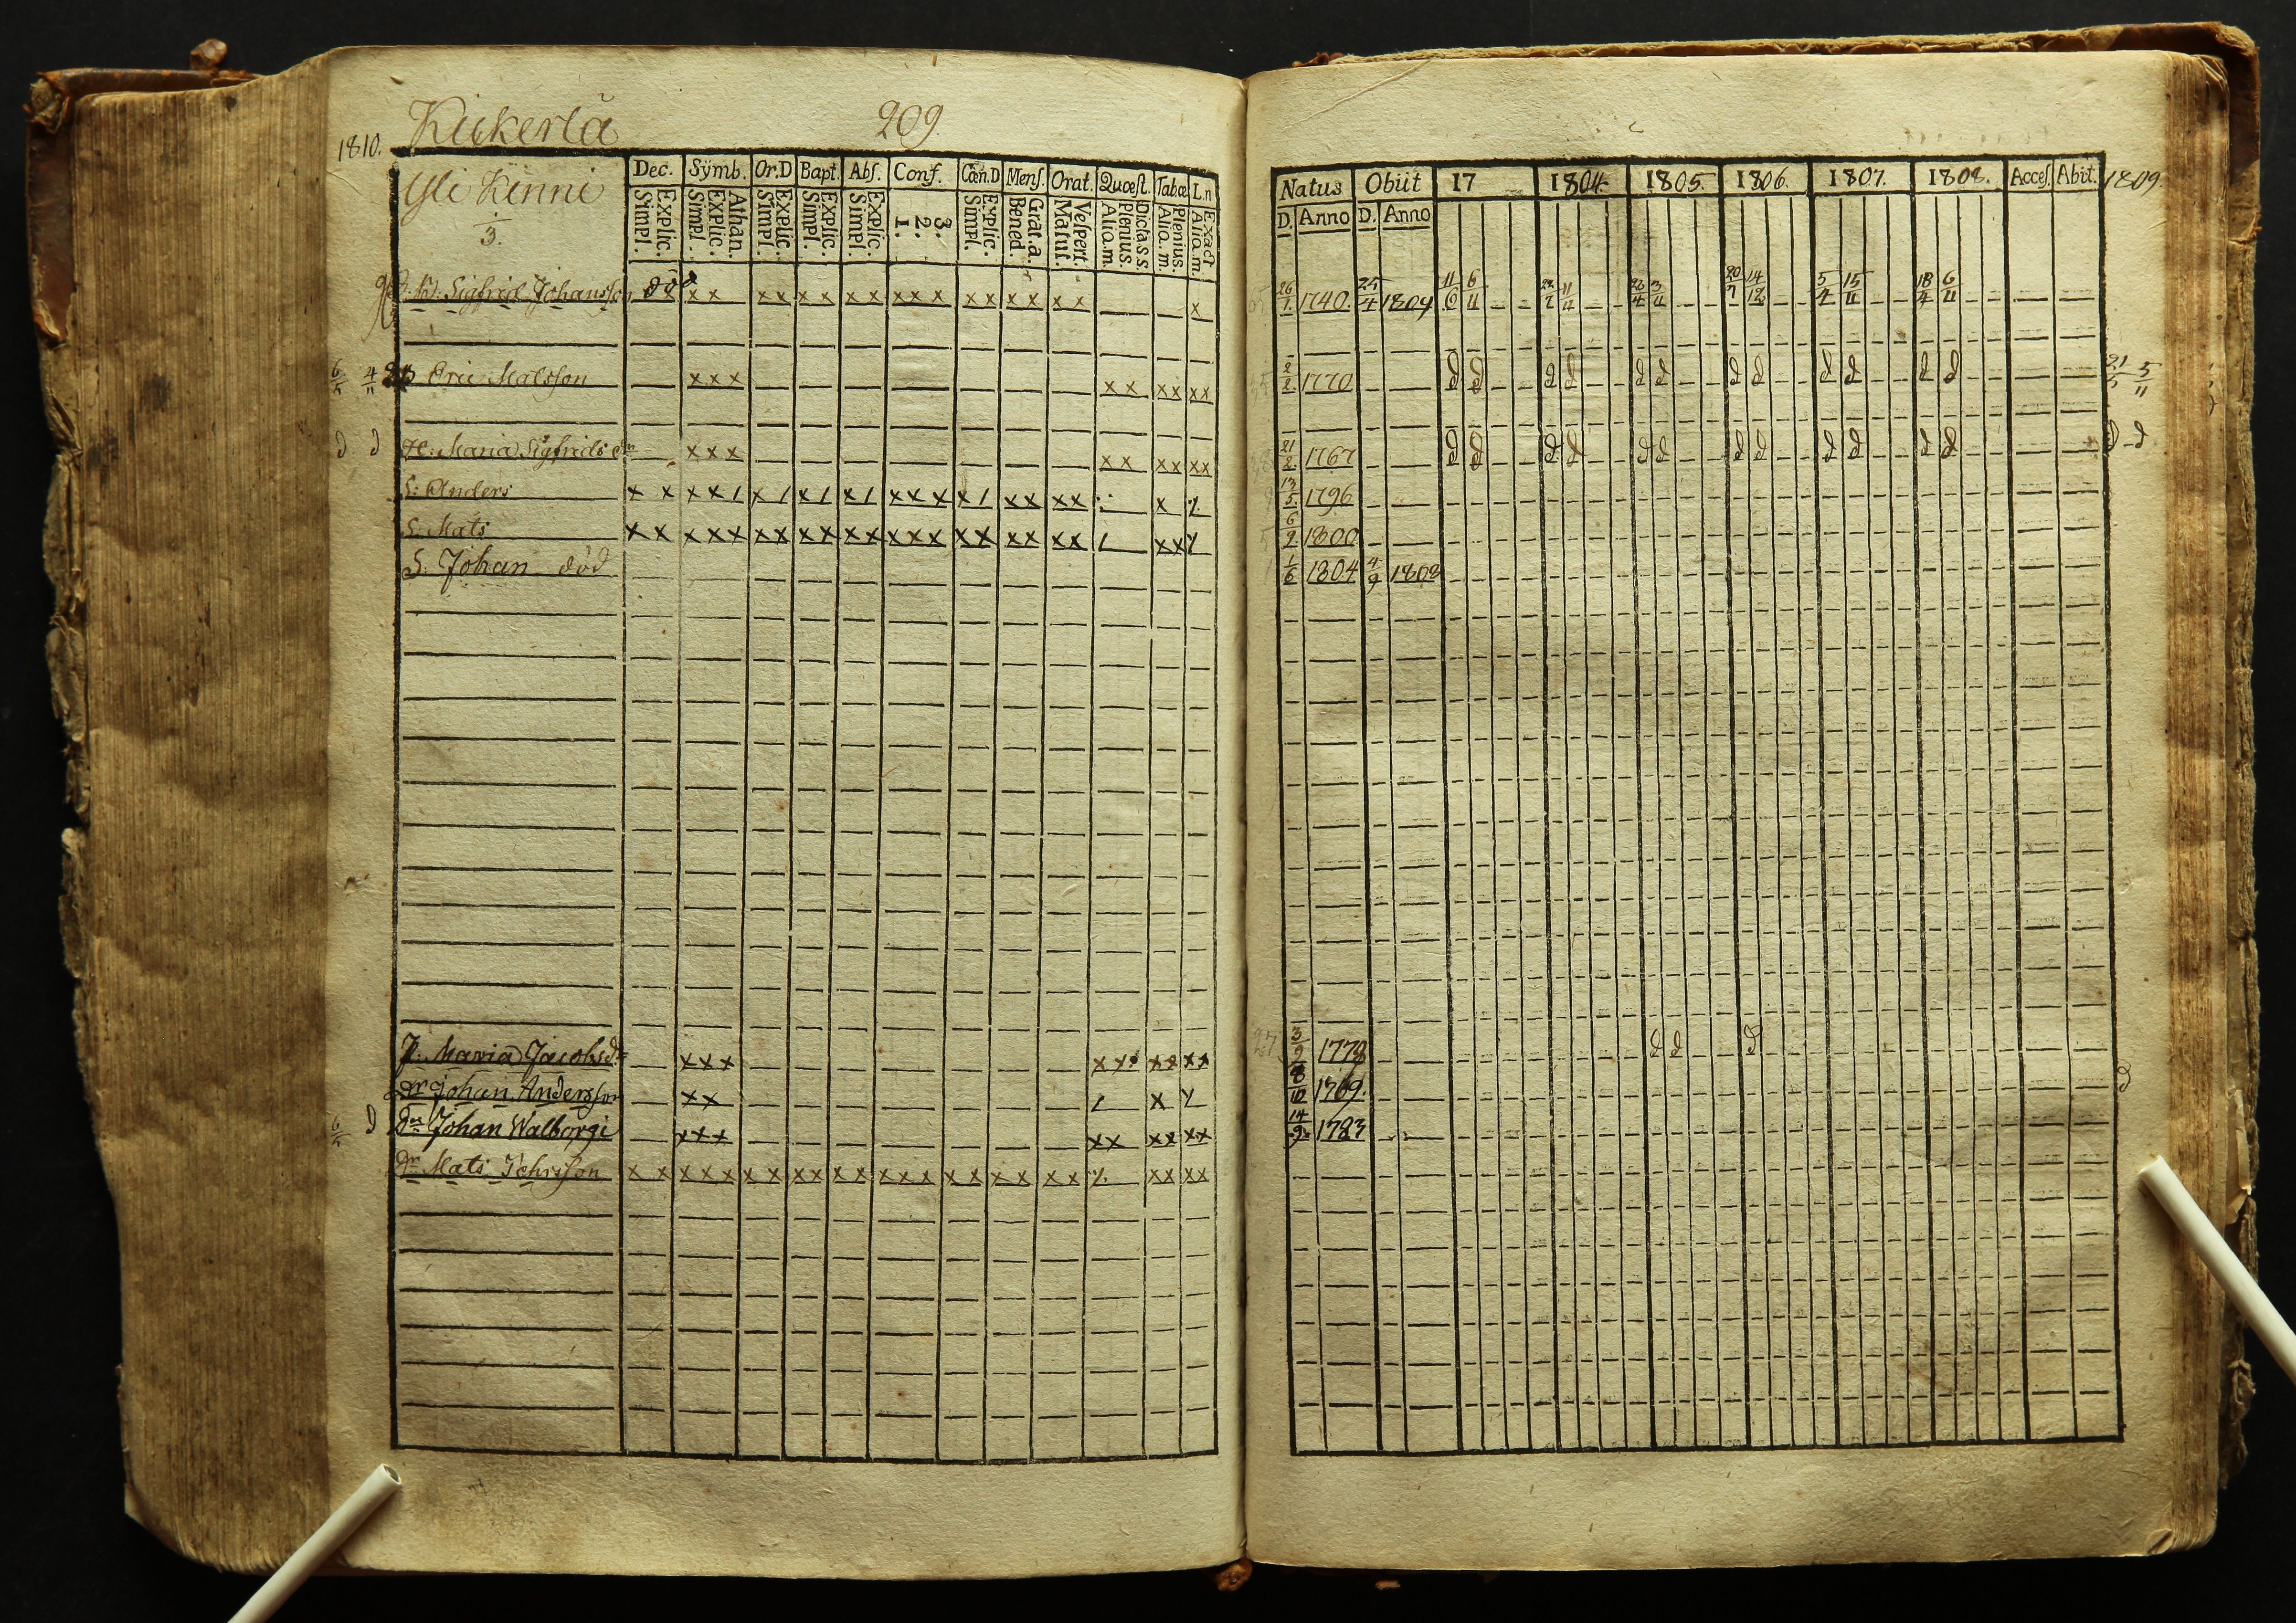 1810. Kickerlä 209
Yli Kenni
3.
Dec. Symb. Or.D Bapt. Abſ. Conf. Cœn.D Menſ. Orat. Quœſt. Tabœ L.n
Explic. Simpl. Athan. Explic. Simpl. Explic. Simpl. Explic. Simpl. Explic. Simpl. 3. 2. 1. Explic. Simpl. Grat.a. Bened. Veſpert. Matut. Dicta S S. Plenius. Alia.m. Plenius. Alia.m. Exact Alia.m.
Sigfred Johansson död x x x x x x x x x x x x x x x x x x x x
6/5 4/11 B Eric Matsson x x x x x x x x x
d d H: Maria Sigfridsdr x x x x x x x x x
S: Anders x x x x / x / x / x / x x x x / x x x x x
S: Mats x x x x x x x x x x x x x x x x x x x x / x x
S: Johan död
P: Maria Jacobsdr x x x x x x x x x
Dr Johan Andersson x x / x
6/5 d Dr Johan Walborgi x x x x x x x x x
Dr Mats Johnsson x x x x x x x x x x x x x x x x x x x x x x x x
Natus Obiit 17 1804. 1805. 1806. 1807. 1808. Acceſ. Abit. 1809.
D. Anno D. Anno
26/1 1740. 25/4 1809 11/6 6/11 22/7 11/11 22/4 3/11 20/7 14/12 5/4 15/11 18/4 6/11
2/2 1770 d d d d d d d d d d d d 21/5 5/11
21/2 1767 d d d d d d d d d d d d d d
13/5 1796
6/2 1800
1/6 1804 4/9 1808
27 3/2 1778 d d d
8/10 1769. d
14/9 1783